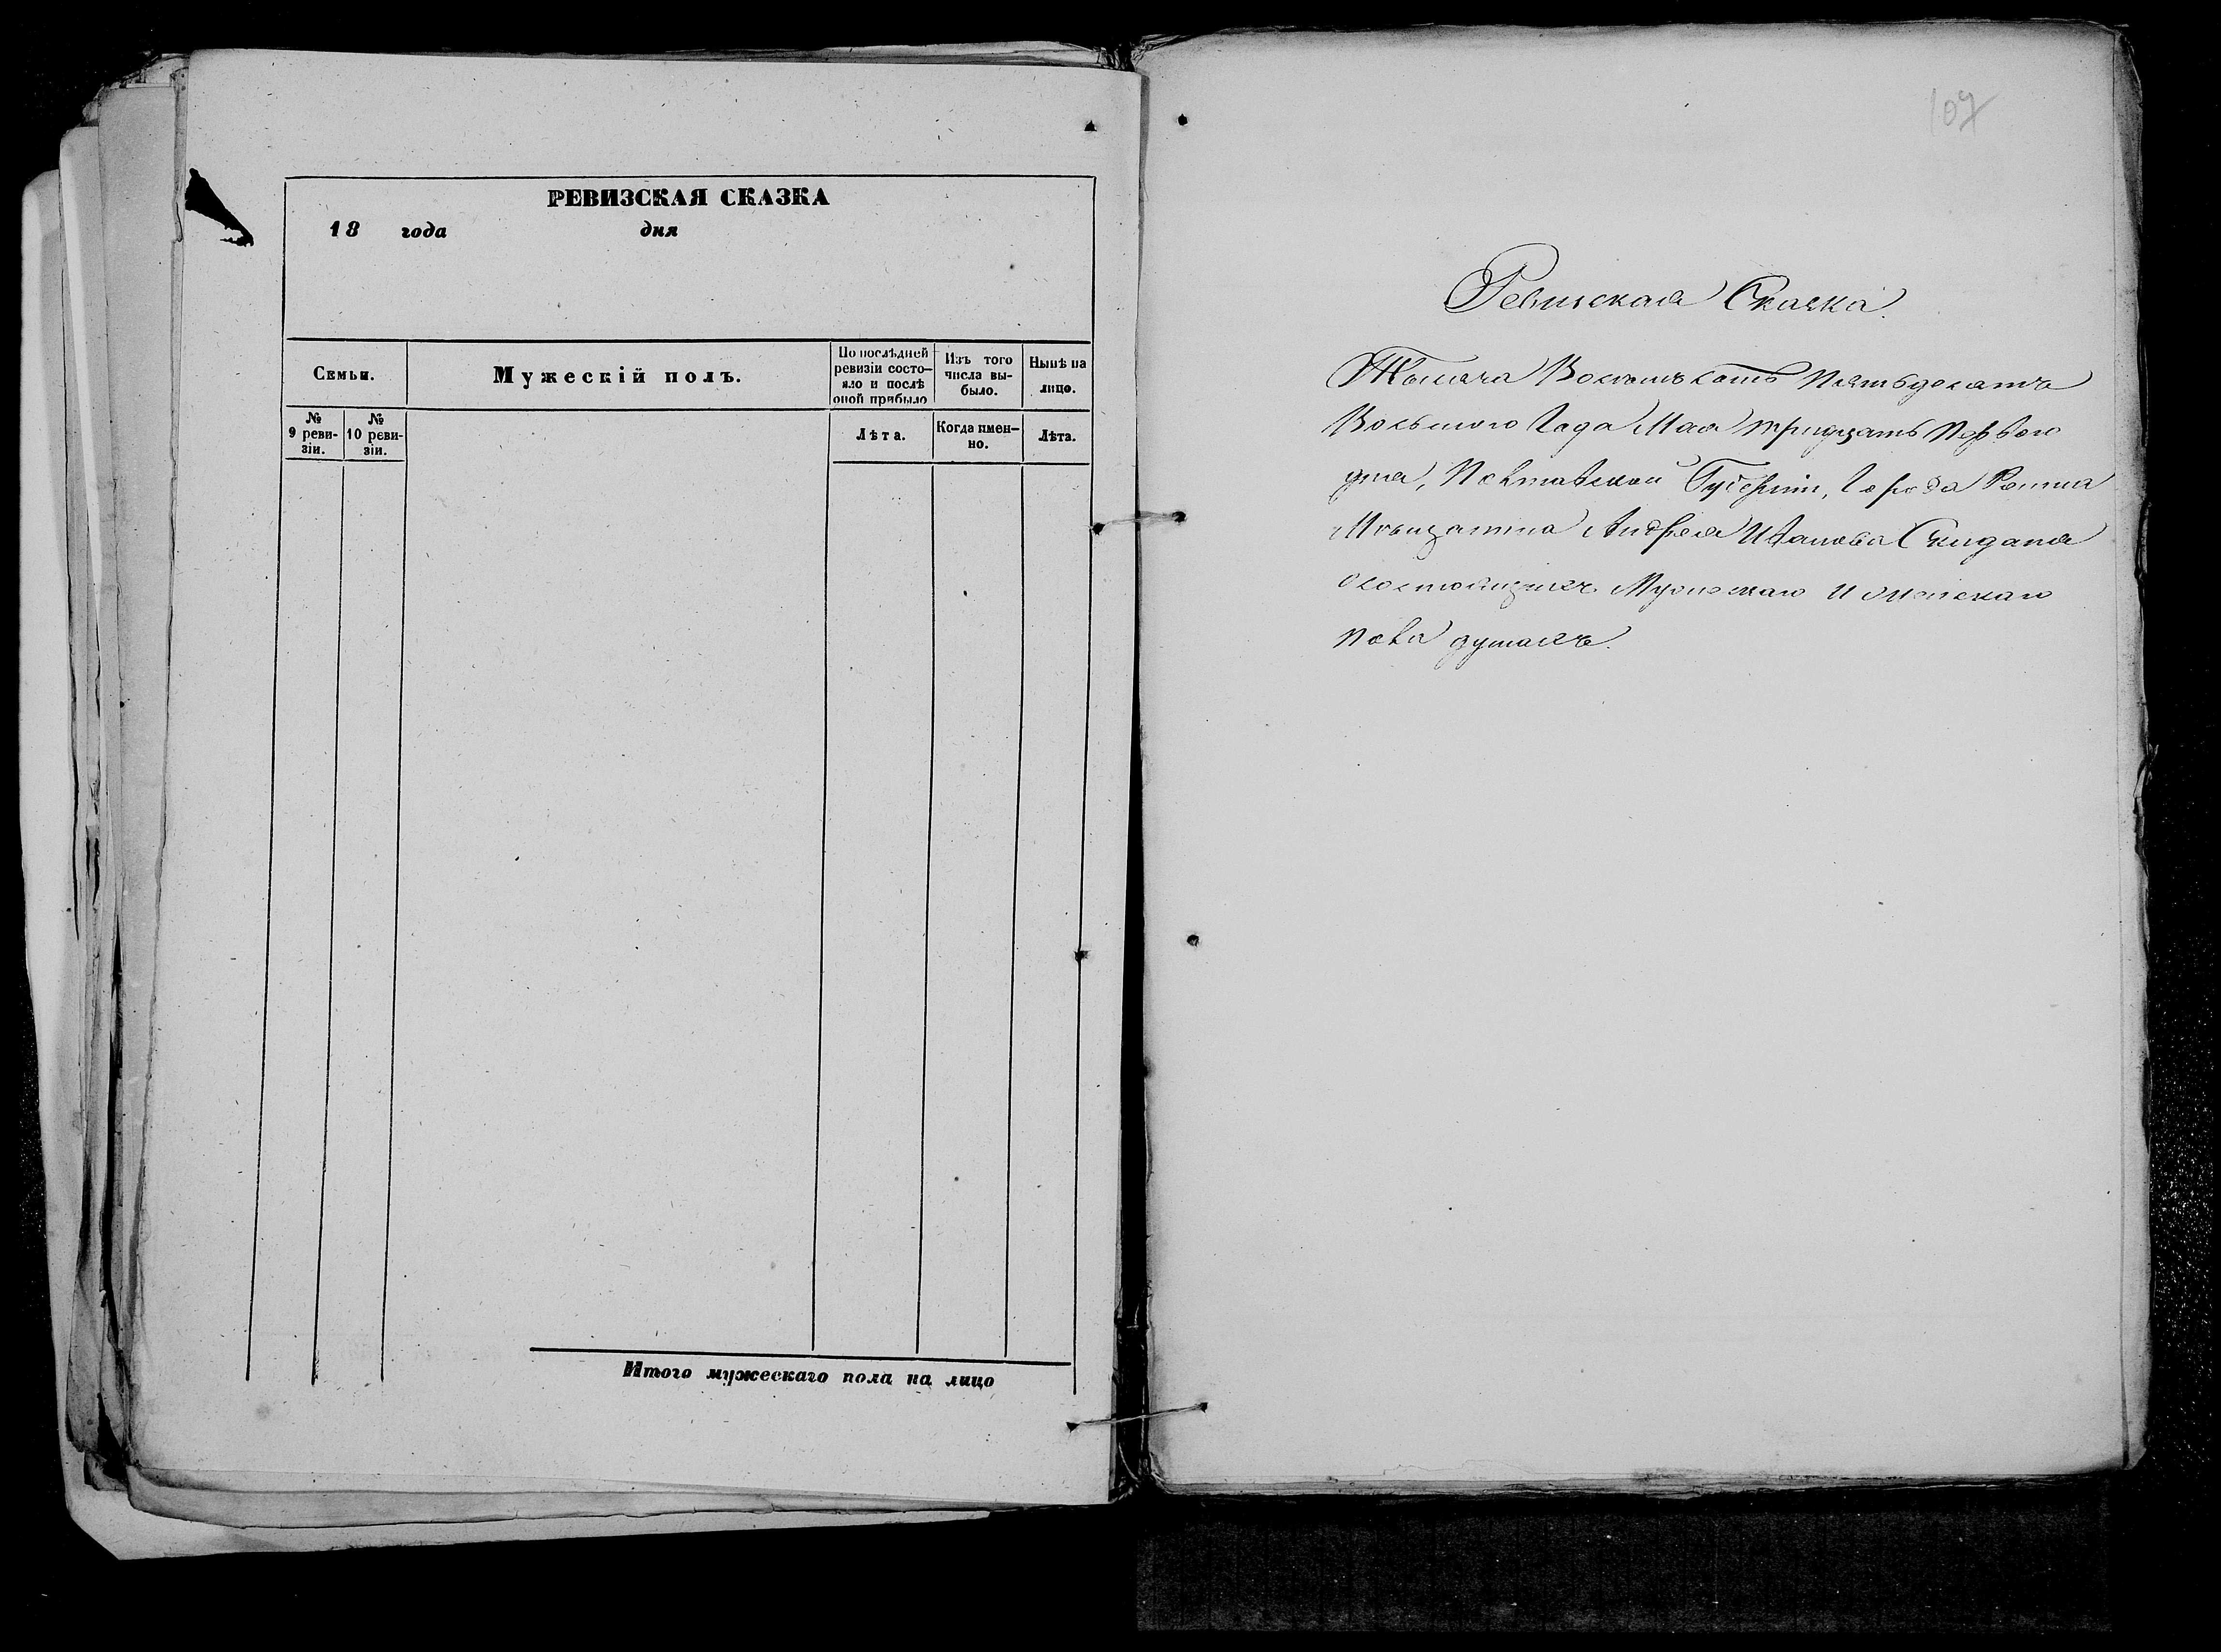 РЕВИЗСКАЯ СКАЗКА
18 года дня
Семьи.
Мужескій полъ.
По послѣдней ревизіи состо-
яло и послѣ
оной прибыло
Изъ того
числа вы-
было.
Ныпѣ на
лицо.
№
9 реви-
зіи.
№
10 реви-
зіи.
Лѣта.
Когда имен-
но.
Лѣта.
Итого мужескаго пола на лицо
107
Ревизская Сказка.
Тысяча Восемьсотъ Пятьдесятъ
Восьмого Года Мая тридцать Первого
дня, Полтавской Губерніи, Города Ромна
Мѣщанина Андрея Иванова Скидана
о состоящихъ Мужескаго и женскаго
пола душахъ.